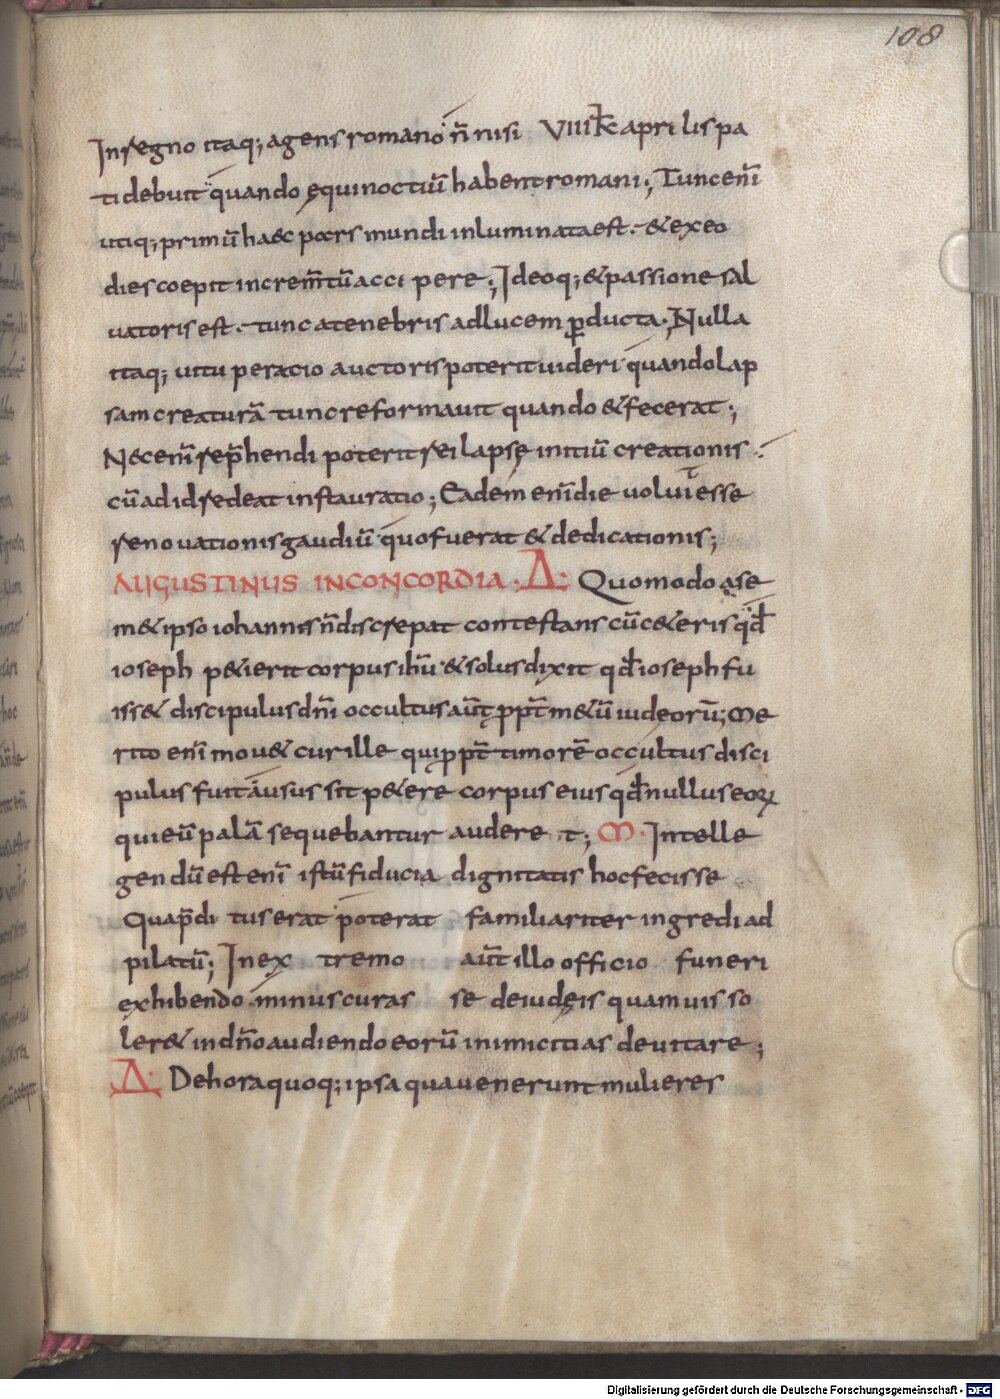 108
In regno itaq; agens romano n̄ nisi VIII kƚ aprilis pa
ti debuit quando ęquinoctiū habent romani; Tunc eni̅
utiq; primū haec pars mundi inluminata est. & ex eo
dies coepit increm̅tū accipere; Ideoq; & passione sal
uatoris est. tunc a tenebris ad lucem ꝑducta; Nulla
itaq; uituperatio auctoris poterit uideri quando lap
sam creaturā tunc reformauit quando & fecerat;
Nec eni̅ rep̅hendi poterit rei lapsę initiū creationis
cū ad id redeat instauratio; Eadem eni̅ die voluit esse
renouationis gaudiū quo fuerat & dedicationis;
AUGUSTINUS IN CONCORDIA. Δ. Quomodo a se
m& ipso iohannis n̄ discrepat contestans cū c&eris qđ
ioseph p&ierit corpus ihū & solus dixit qđ ioseph fu
iss& discipulus dn̄i occultus aūt ꝓpt̄ m&ū iudęorū; Me
rito eni̅ mou& cur ille qui ꝓpt̄ timorē occultus disci
pulus fuit ausus sit p&ere corpus eius qđ nullus eoꝝ
qui eū palā sequebantur auderet; M. Intelle
gendū est eni̅ istū fiducia dignitatis hoc fecisse
Qua p̄ditus erat poterat familiariter ingredi ad
pilatū; In extremo aūt illo officio funeri
exhibendo minus curasse de iudęis quamuis so
ler& in dn̄o audiendo eorū inimicitias deuitare;
Δ. De hora quoq; ipsa qua uenerunt mulieres
Digitalisierung gefördert durch die Deutsche Forschungsgemeinschaft - DFG